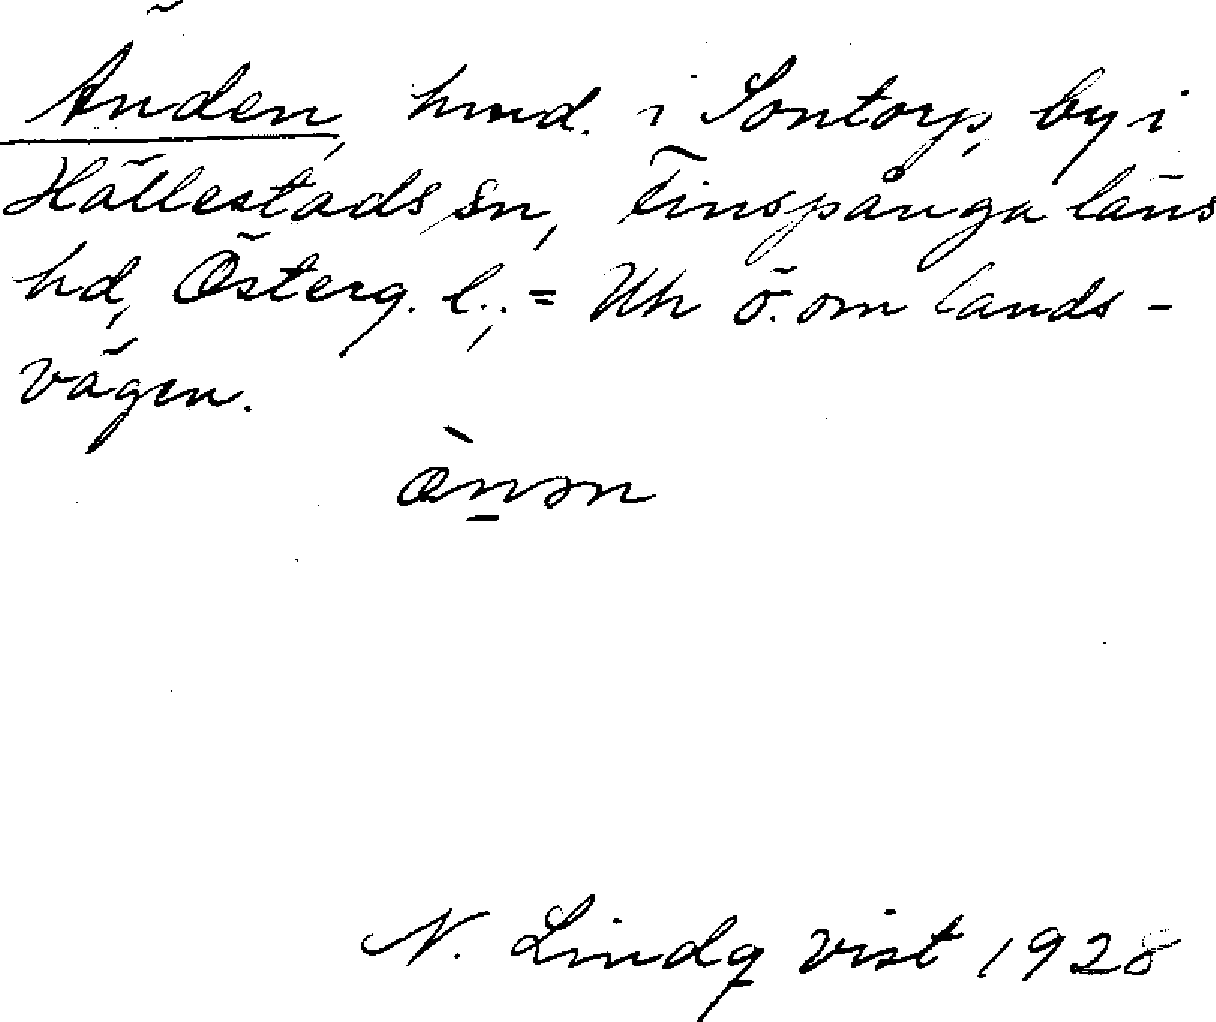 Änden, hmd. i Sontorp, by i
Hällestads sn, Finspånga läns
hd, Österg. l.; = Uh ö. om lands-
vägen.
æ̀n̠ən
N. Lindqvist 1928